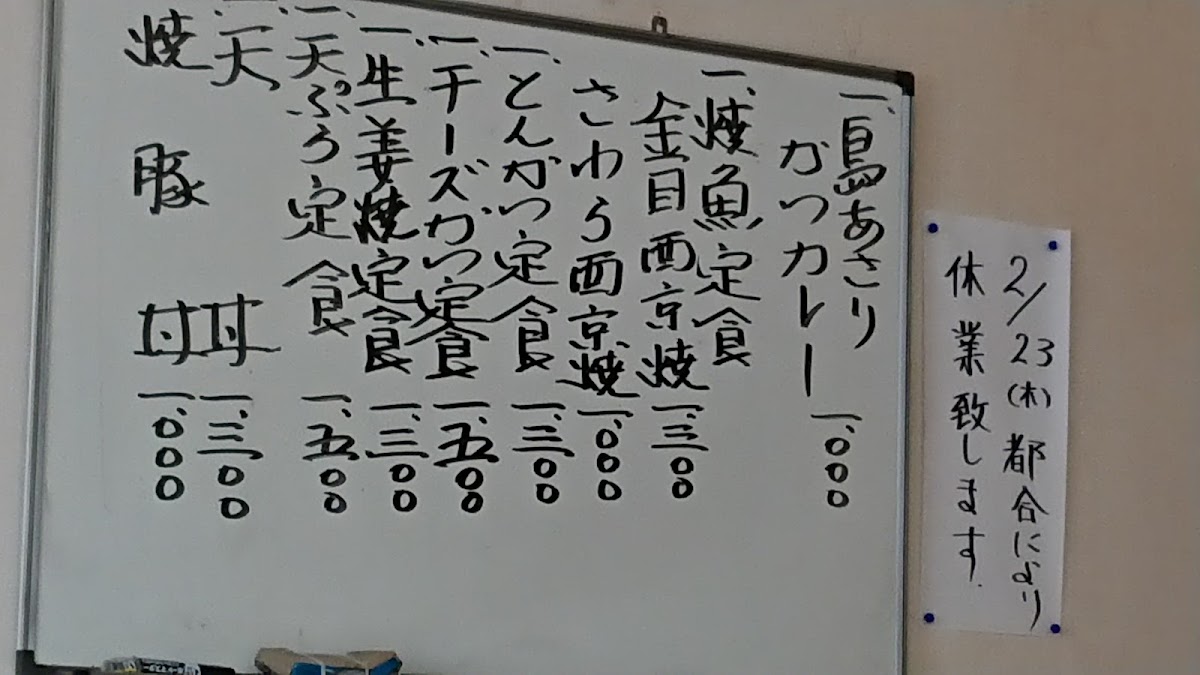 一、鳥あさり
かつカレー 一、〇〇〇
一、焼魚定食
金目西京焼 一、三〇〇
さわら西京焼 一、〇〇〇
一、とんかつ定食 一、三〇〇
一、チーズかつ定食 一、五〇〇
一、生姜焼定食 一、三〇〇
一、天ぷら定食 一、五〇〇
一、天丼 一、三〇〇
焼豚丼 一、〇〇〇
2/23(木)都合により
休業致します.